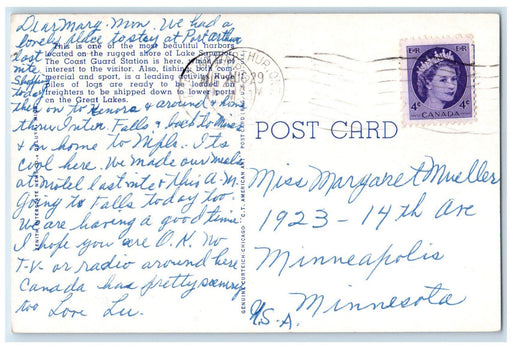 Dear Mary - Mim. We had a
lovely place to stay at Port Arthur
last
nite
This is one of the most beautiful harbors
located on the rugged shore of Lake Superior.
The Coast Guard Station is here,
interest to the visitor. Also, fishing both com-
mercial and sport, is a leading activity. Huge
piles of logs are ready to be loaded on
freighters to be shipped down to lower ports
on the Great Lakes.
Shop
today
then on to Kenora & around & home
thru Inter. Falls & back to
& on home to Mpls. Its
cool here. We made our meals
at Motel last nite & this A.M.
Going to Falls today too.
We are having a good time
I hope you are O.K. No
T-V- or radio around here
Canada has pretty scenery
too Love Lu.
GENUINE CURTEICH-CHICAGO "C.T. AMERICAN
POST CARD
E·R E·R
4¢ 4¢
CANADA
Miss Margaret Mueller
1923 - 14th Ave
Minneapolis
Minnesota
U.S.A.